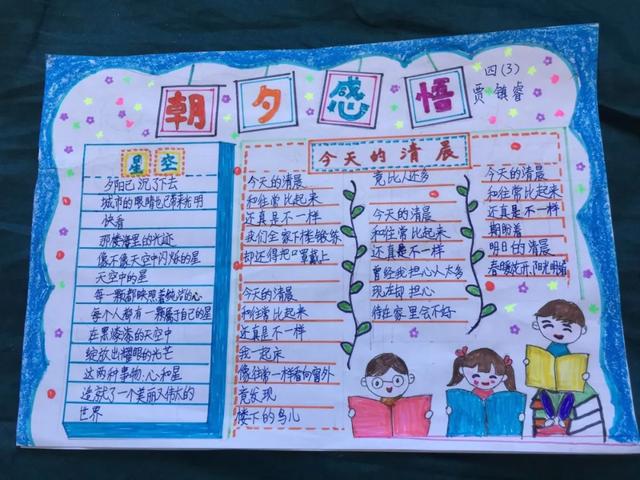 朝夕感悟
四(3)
贾镇睿
星空
夕阳已沉下去
城市的眼睛也已带来光明
快看
那楼海里的光迹
像不像天空中闪烁的星
天空中的星
每一颗都映照着纯洁的心
每个人都有一颗属于自己的星
在黑漆漆的天空中
绽放出耀眼的光芒
这两种事物:心和星
造就了一个美丽又伟大的
世界
今天的清晨
今天的清晨
和往常比起来
还真是不一样
我们全家下楼锻练
却还得把口罩戴上
今天的清晨
和往常比起来
还真是不一样
我一起床
像往常一样看向窗外
竟发现
楼下的鸟儿
竟比人还多
今天的清晨
和往常比起来
还真是不一样
曾经我担心人太多
现在却担心
待在家里会不好
今天的清晨
和往常比起来
还真是不一样
期盼着
明日的清晨
春暖花开,阳光明媚